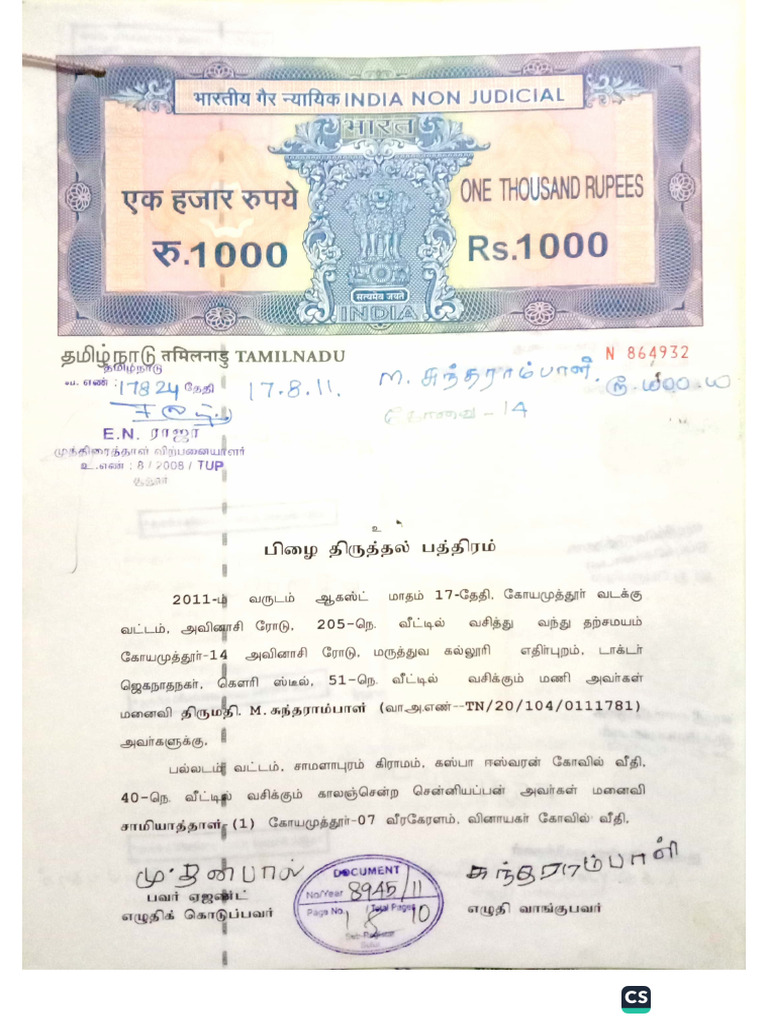 भारतीय गैर न्यायिक INDIA NON JUDICIAL
भारत
एक हजार रुपये
ONE THOUSAND RUPEES
रु.1000
Rs.1000
सत्यमेव जयते
INDIA
தமிழ்நாடு तमिलनाडु TAMILNADU
N 864932
தமிழ்நாடு
எண் : 17824 தேதி 17.8.11. M. சுந்தராம்பாள். ரூ.
கோவை - 14
E.N. ராஜா
முத்திரைத்தாள் விற்பனையாளர்
உ.எண் : 8 / 2008 / TUP
சூலூர்
உ
பிழை திருத்தல் பத்திரம்
2011-ம் வருடம் ஆகஸ்ட் மாதம் 17-தேதி, கோயமுத்தூர் வடக்கு
வட்டம், அவினாசி ரோடு, 205-நெ. வீட்டில் வசித்து வந்து தற்சமயம்
கோயமுத்தூர்-14 அவினாசி ரோடு, மருத்துவ கல்லூரி எதிர்புறம், டாக்டர்
ஜெகநாதநகர், கௌரி ஸ்டீல், 51-நெ. வீட்டில் வசிக்கும் மணி அவர்கள்
மனைவி திருமதி. M.சுந்தராம்பாள் (வா.அ.எண்--TN/20/104/0111781)
அவர்களுக்கு,
பல்லடம் வட்டம், சாமளாபுரம் கிராமம், கஸ்பா ஈஸ்வரன் கோவில் வீதி,
40-நெ. வீட்டில் வசிக்கும் காலஞ்சென்ற சென்னியப்பன் அவர்கள் மனைவி
சாமியாத்தாள் (1) கோயமுத்தூர்-07 வீரகேரளம், விநாயகர் கோவில் வீதி,
மு.தனபால்
சுந்தராம்பாள்
பவர் ஏஜண்ட்
எழுதிக் கொடுப்பவர்
எழுதி வாங்குபவர்
DOCUMENT
No/Year 8945/11
Page No. 1 Total Pages 10
8
Sub-Registrar
Sulur
CS